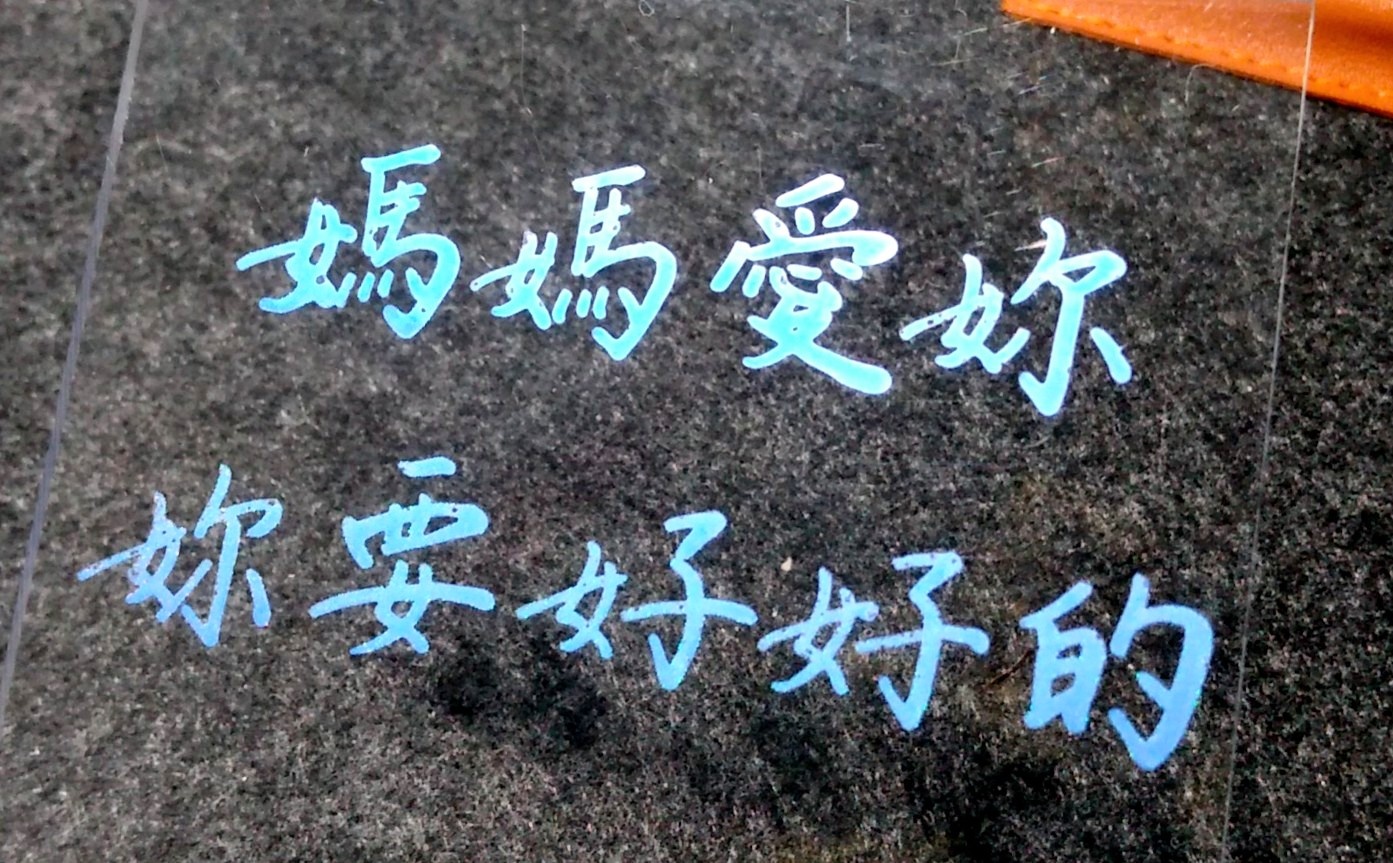 媽媽愛妳
妳要好好的